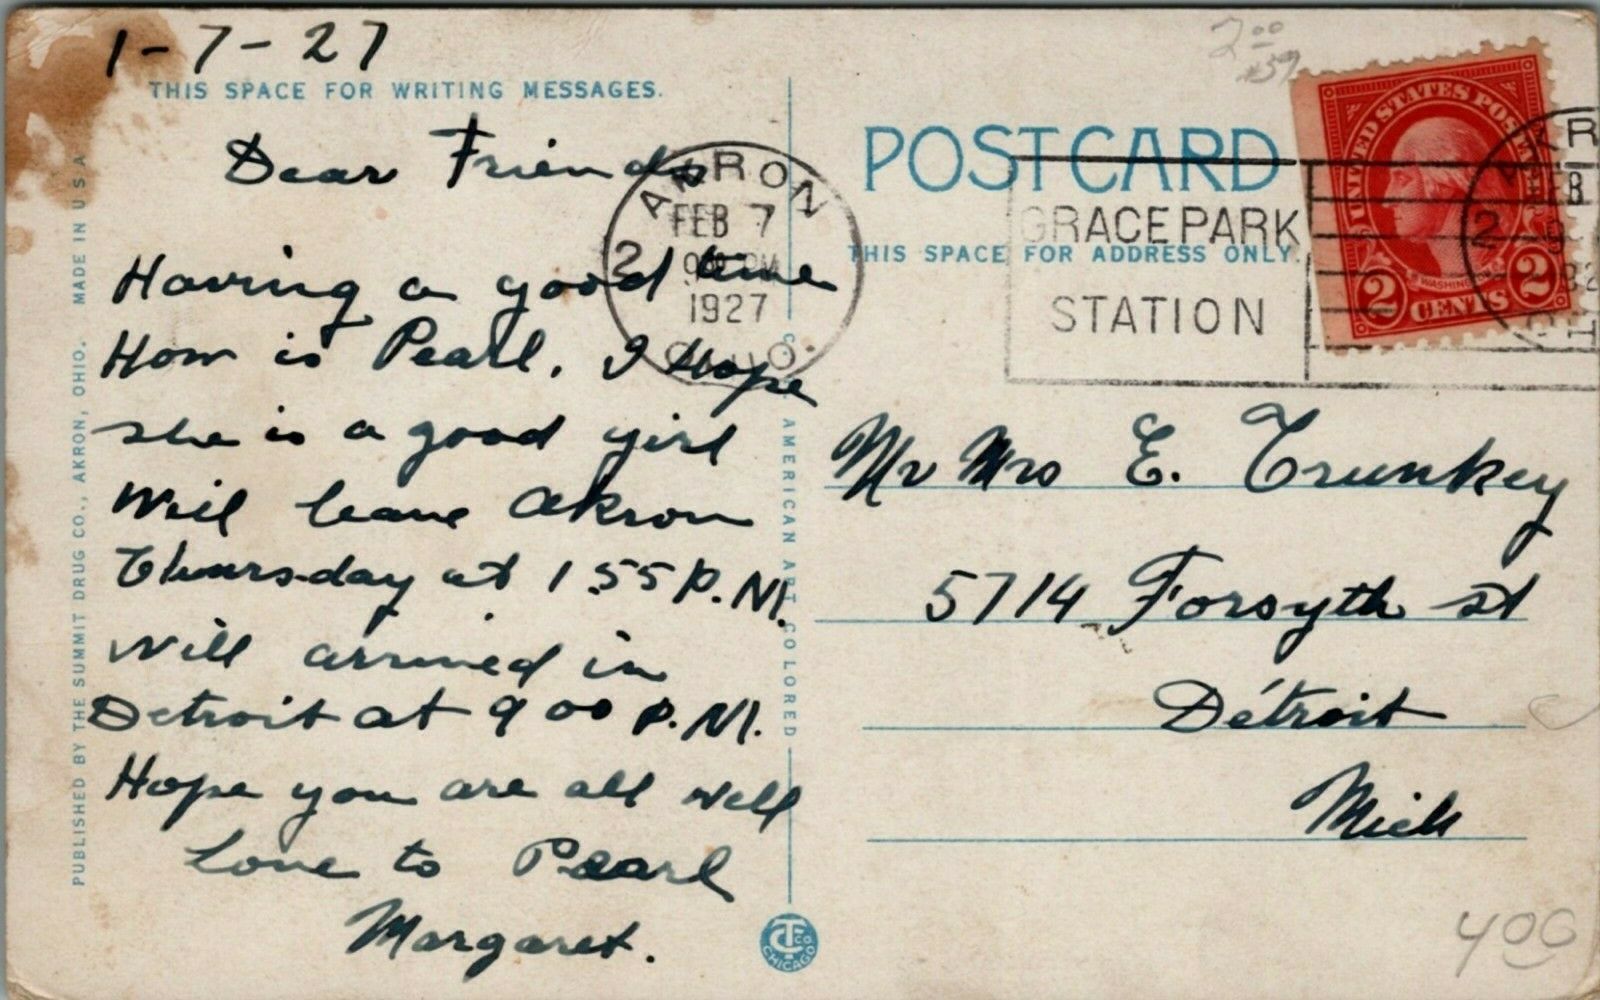 1-7-27
THIS SPACE FOR WRITING MESSAGES.
Dear Friends
Having a good time
How is Pearl. I Hope
she is a good girl
Will leave Akron
Thursday at 1 55 P.M.
Will arrived in
Detroit at 9 00 P.M.
Hope you are all well
Love to Pearl
Margaret.
PUBLISHED BY THE SUMMIT DRUG CO., AKRON, OHIO. MADE IN U.S.A.
AKRON
FEB 7
2
PM
1927
OHIO.
AMERICAN ART COLORED
CT CO
CHICAGO
POST CARD
THIS SPACE FOR ADDRESS ONLY.
GRACE PARK
STATION
UNITED STATES POSTAGE
WASHINGTON
2 CENTS 2
2 00
Mr Mrs E. Trunkey
5714 Forsyth st
Détroit
Mich
400